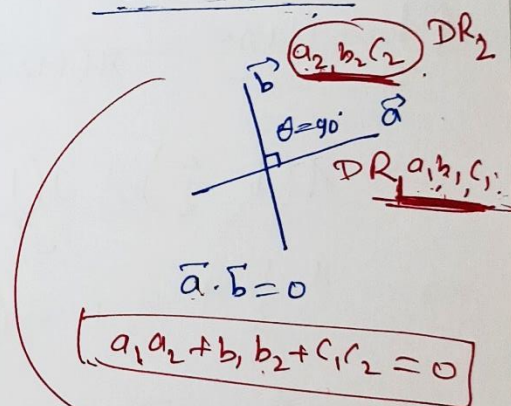 a₂, b₂ c₂ DR₂
b⃗
θ=90° a⃗
DR₁ a₁ b₁ c₁
a⃗ · b⃗ = 0
a₁a₂ + b₁b₂ + c₁c₂ = 0